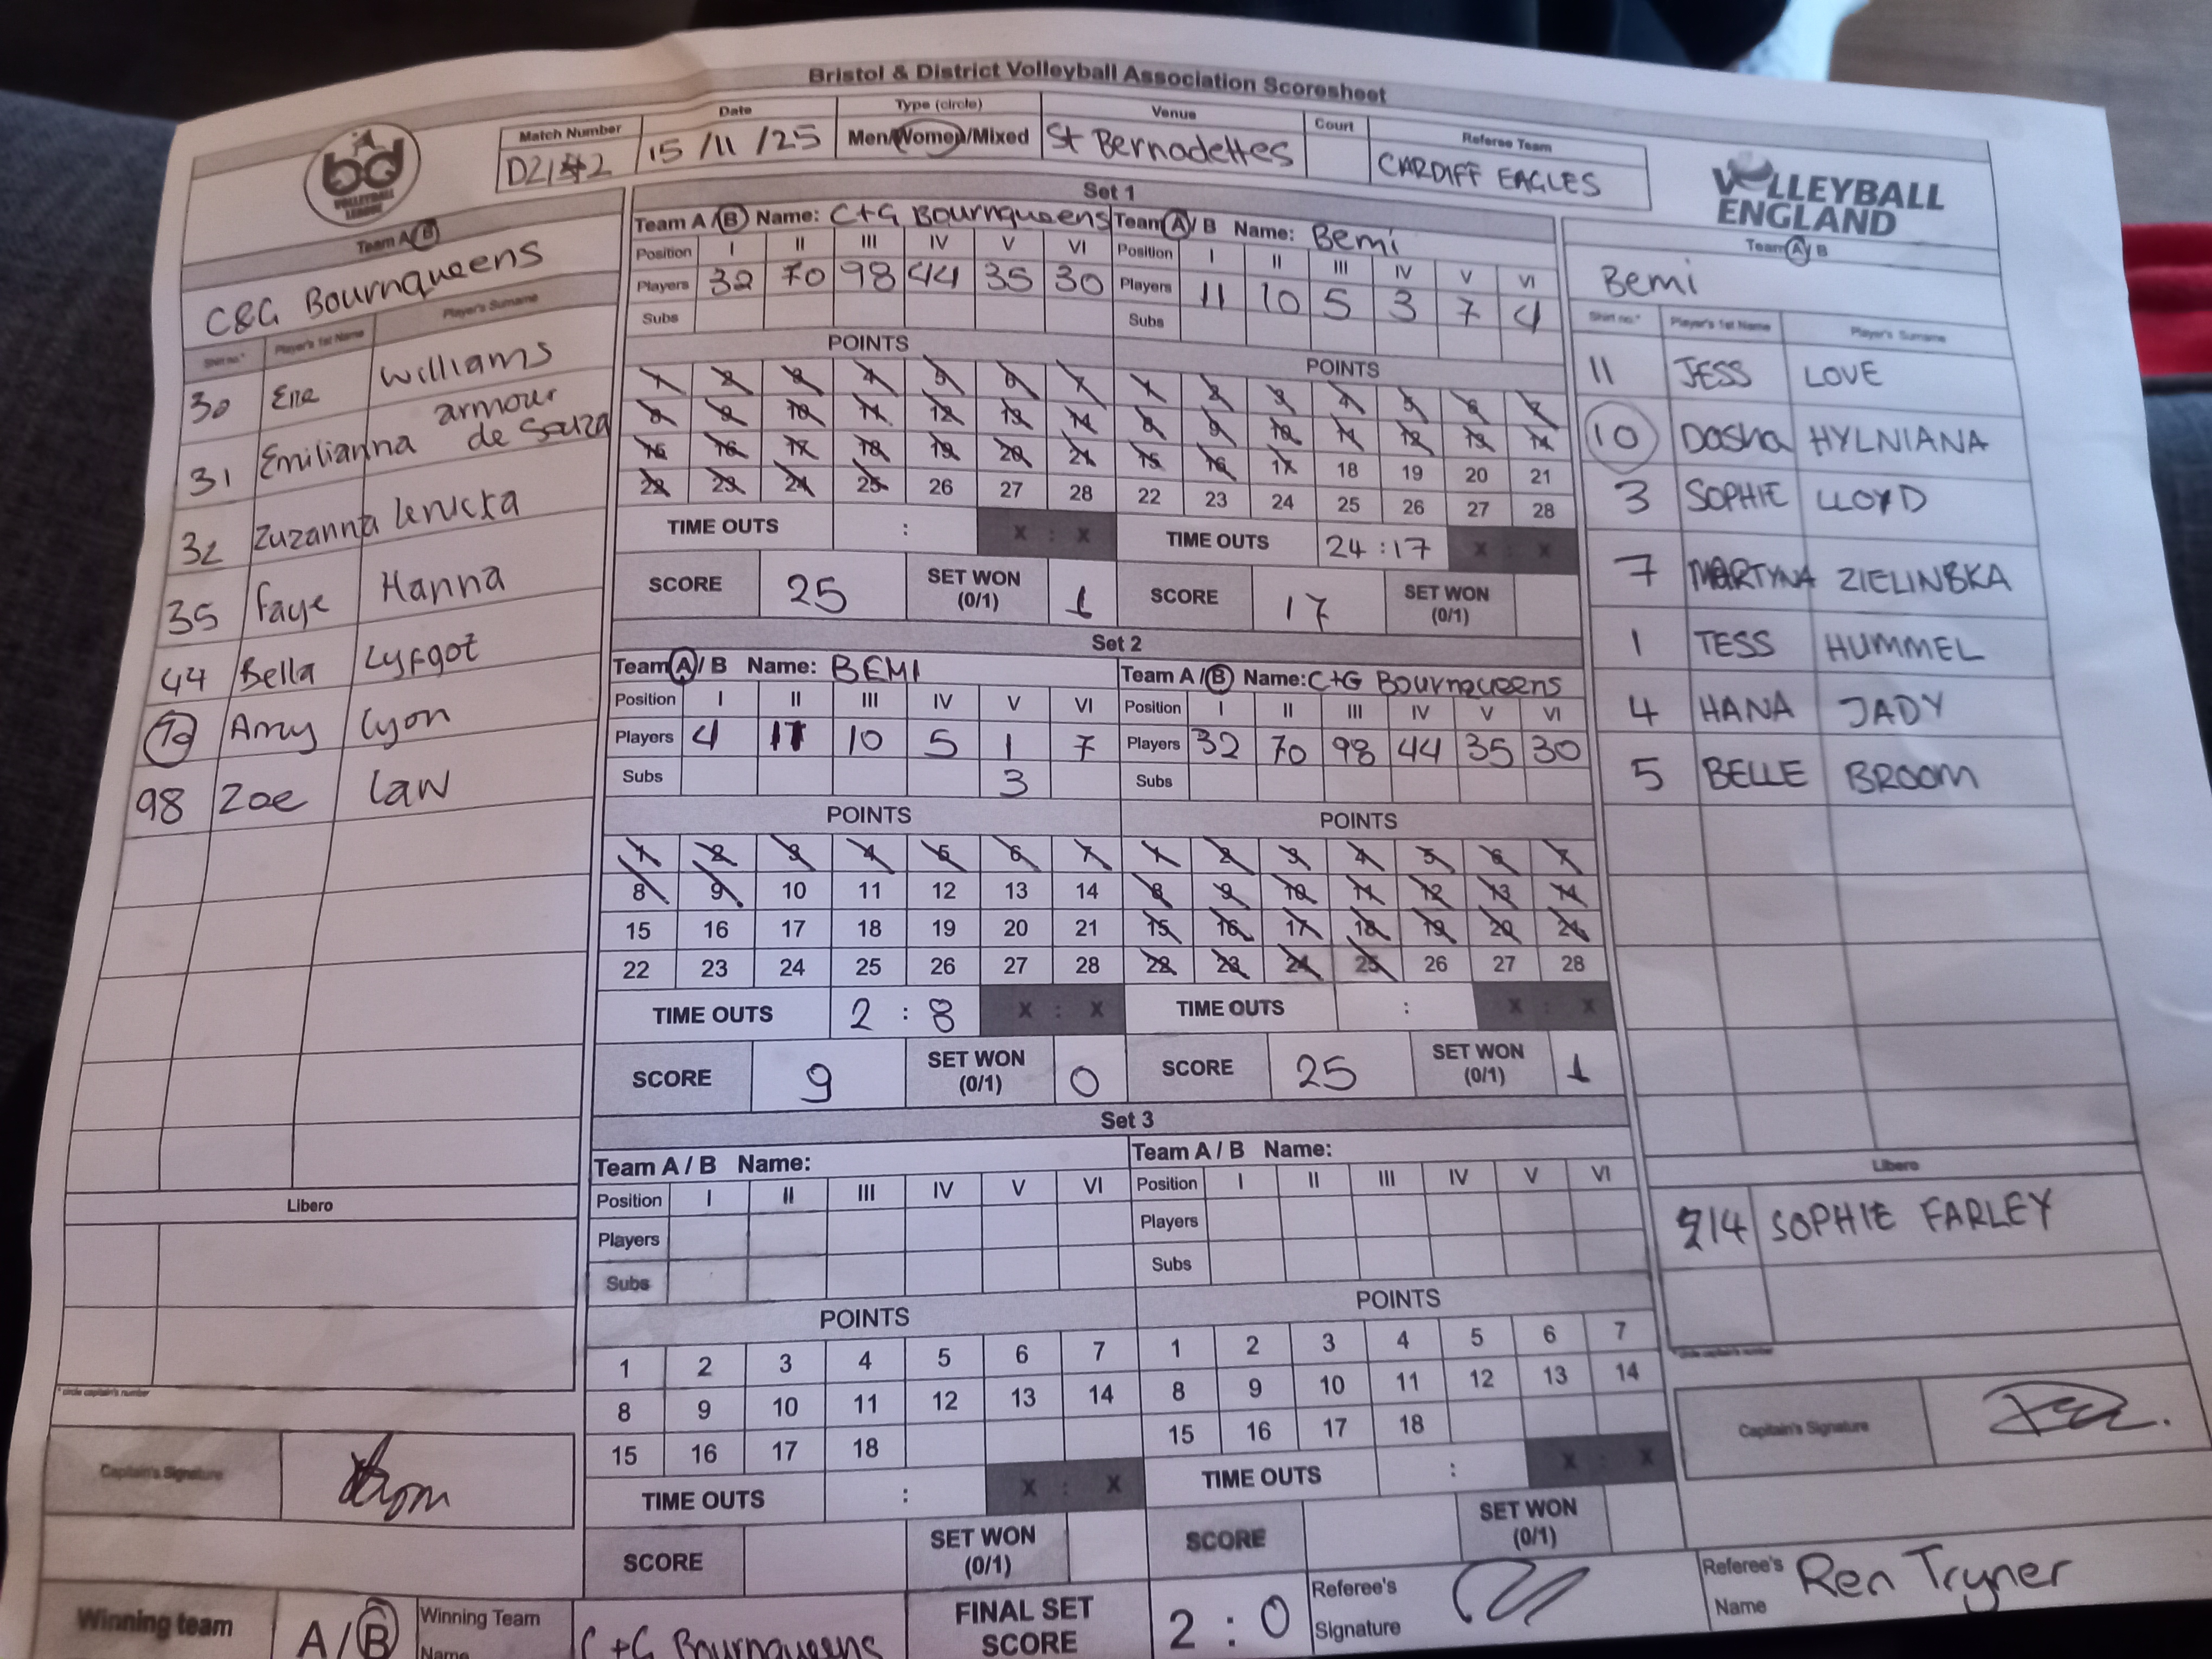 Bristol & District Volleyball Association Scoresheet
bd
VOLLEYBALL
LEAGUE
Match Number
Date
Type (circle)
Venue
Court
Referee Team
15/11/25
Men/Women/Mixed
St Bernadettes
CARDIFF EAGLES
VOLLEYBALL
ENGLAND
Team A/B
C&G Bournqueens
Shirt no.* Player's 1st Name Player's Surname
30 Williams
31 Emilianna armour de Souza
32 Zuzanna
35 Faye Hanna
44 Bella Lyfgot
70 Amy Lyon
98 Zoe Law
Libero
* circle captain's number
Captain's Signature
Set 1
Team A/B Name: C+G Bournqueens
Position I II III IV V VI
Players 32 70 98 44 35 30
Subs
POINTS
1 2 3 4 5 6 7
8 9 10 11 12 13 14
15 16 17 18 19 20 21
22 23 24 25 26 27 28
TIME OUTS : X : X
SCORE 25 SET WON (0/1) 1
Team A/B Name: Bemi
Position I II III IV V VI
Players 11 10 5 3 7 4
Subs
POINTS
1 2 3 4 5 6 7
8 9 10 11 12 13 14
15 16 17 18 19 20 21
22 23 24 25 26 27 28
TIME OUTS 24 : 17 X : X
SCORE 17 SET WON (0/1)
Set 2
Team A/B Name: BEMI
Position I II III IV V VI
Players 4 11 10 5 1 7
Subs 3
POINTS
1 2 3 4 5 6 7
8 9 10 11 12 13 14
15 16 17 18 19 20 21
22 23 24 25 26 27 28
TIME OUTS 2 : 8 X : X
SCORE 9 SET WON (0/1) 0
Team A/B Name: C+G Bournqueens
Position I II III IV V VI
Players 32 70 98 44 35 30
Subs
POINTS
1 2 3 4 5 6 7
8 9 10 11 12 13 14
15 16 17 18 19 20 21
22 23 24 25 26 27 28
TIME OUTS : X : X
SCORE 25 SET WON (0/1) 1
Set 3
Team A / B Name:
Position I II III IV V VI
Players
Subs
POINTS
1 2 3 4 5 6 7
8 9 10 11 12 13 14
15 16 17 18
TIME OUTS : X : X
SCORE SET WON (0/1)
Team A / B Name:
Position I II III IV V VI
Players
Subs
POINTS
1 2 3 4 5 6 7
8 9 10 11 12 13 14
15 16 17 18
TIME OUTS : X : X
SCORE SET WON (0/1)
Team A/B
Bemi
Shirt no.* Player's 1st Name Player's Surname
11 JESS LOVE
10 Dasha HYLNIANA
3 SOPHIE LLOYD
7 MARTYNA ZIELINSKA
1 TESS HUMMEL
4 HANA JADY
5 BELLE BROOM
Libero
14 SOPHIE FARLEY
* circle captain's number
Captain's Signature
Winning team A/B
Winning Team Name C+G Bournqueens
FINAL SET SCORE 2 : 0
Referee's Signature
Referee's Name Ren Tryner